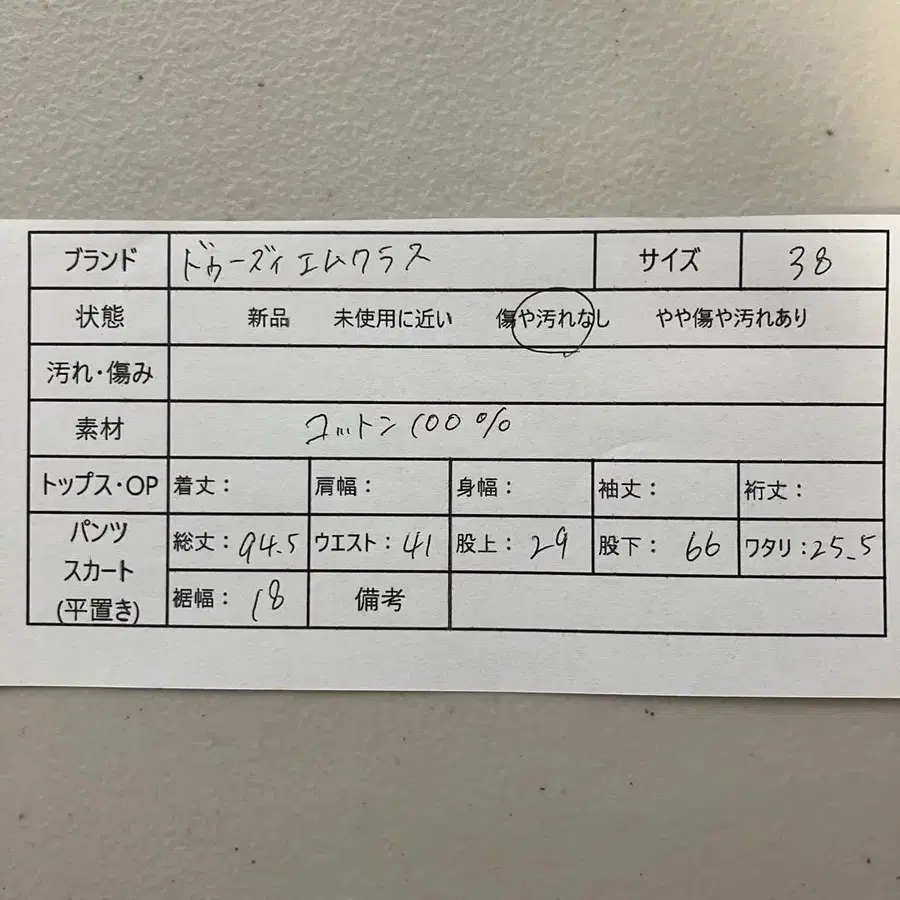 ブランド ドゥーズィエムクラス サイズ 38
状態 新品 未使用に近い 傷や汚れなし やや傷や汚れあり
汚れ・傷み
素材 コットン100%
トップス・OP 着丈： 肩幅： 身幅： 袖丈： 裄丈：
パンツ スカート (平置き) 総丈：94.5 ウエスト：41 股上：29 股下：66 ワタリ：25.5
裾幅：18 備考